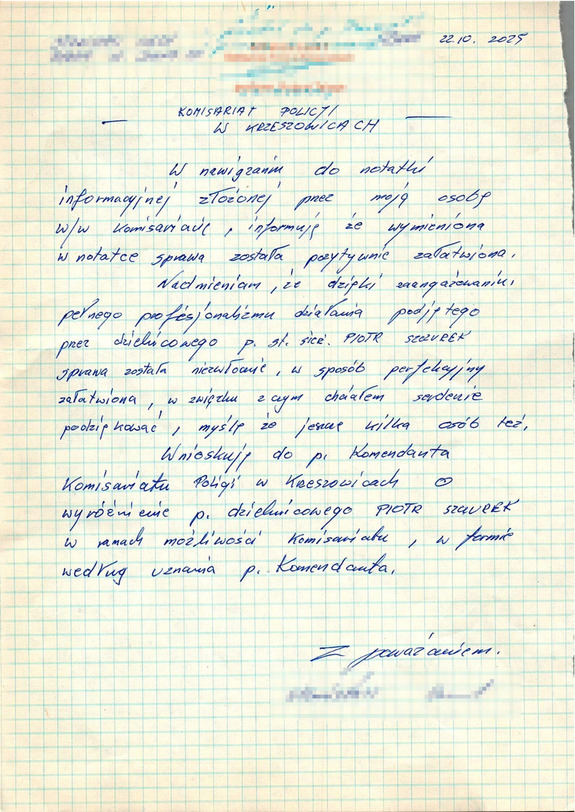 22.10.2025
KOMISARIAT POLICJI
W KRZESZOWICACH
W nawiązaniu do notatki
informacyjnej złożonej przez moją osobę
w/w Komisariacie, informuję że wymieniona
w notatce sprawa została pozytywnie załatwiona.
Nadmieniam, że dzięki zaangażowaniu,
pełnego profesjonalizmu działania podjętego
przez dzielnicowego p. st. sierż. PIOTR SZWEREK
sprawa została niezwłocznie, w sposób perfekcyjny
załatwiona, w związku z czym chciałem serdecznie
podziękować, myślę że jeszcze kilka osób też.
Wnioskuję do p. Komendanta
Komisariatu Policji w Krzeszowicach o
wyróżnienie p. dzielnicowego PIOTR SZWEREK
w ramach możliwości Komisariatu, w formie
według uznania p. Komendanta.
Z poważaniem.